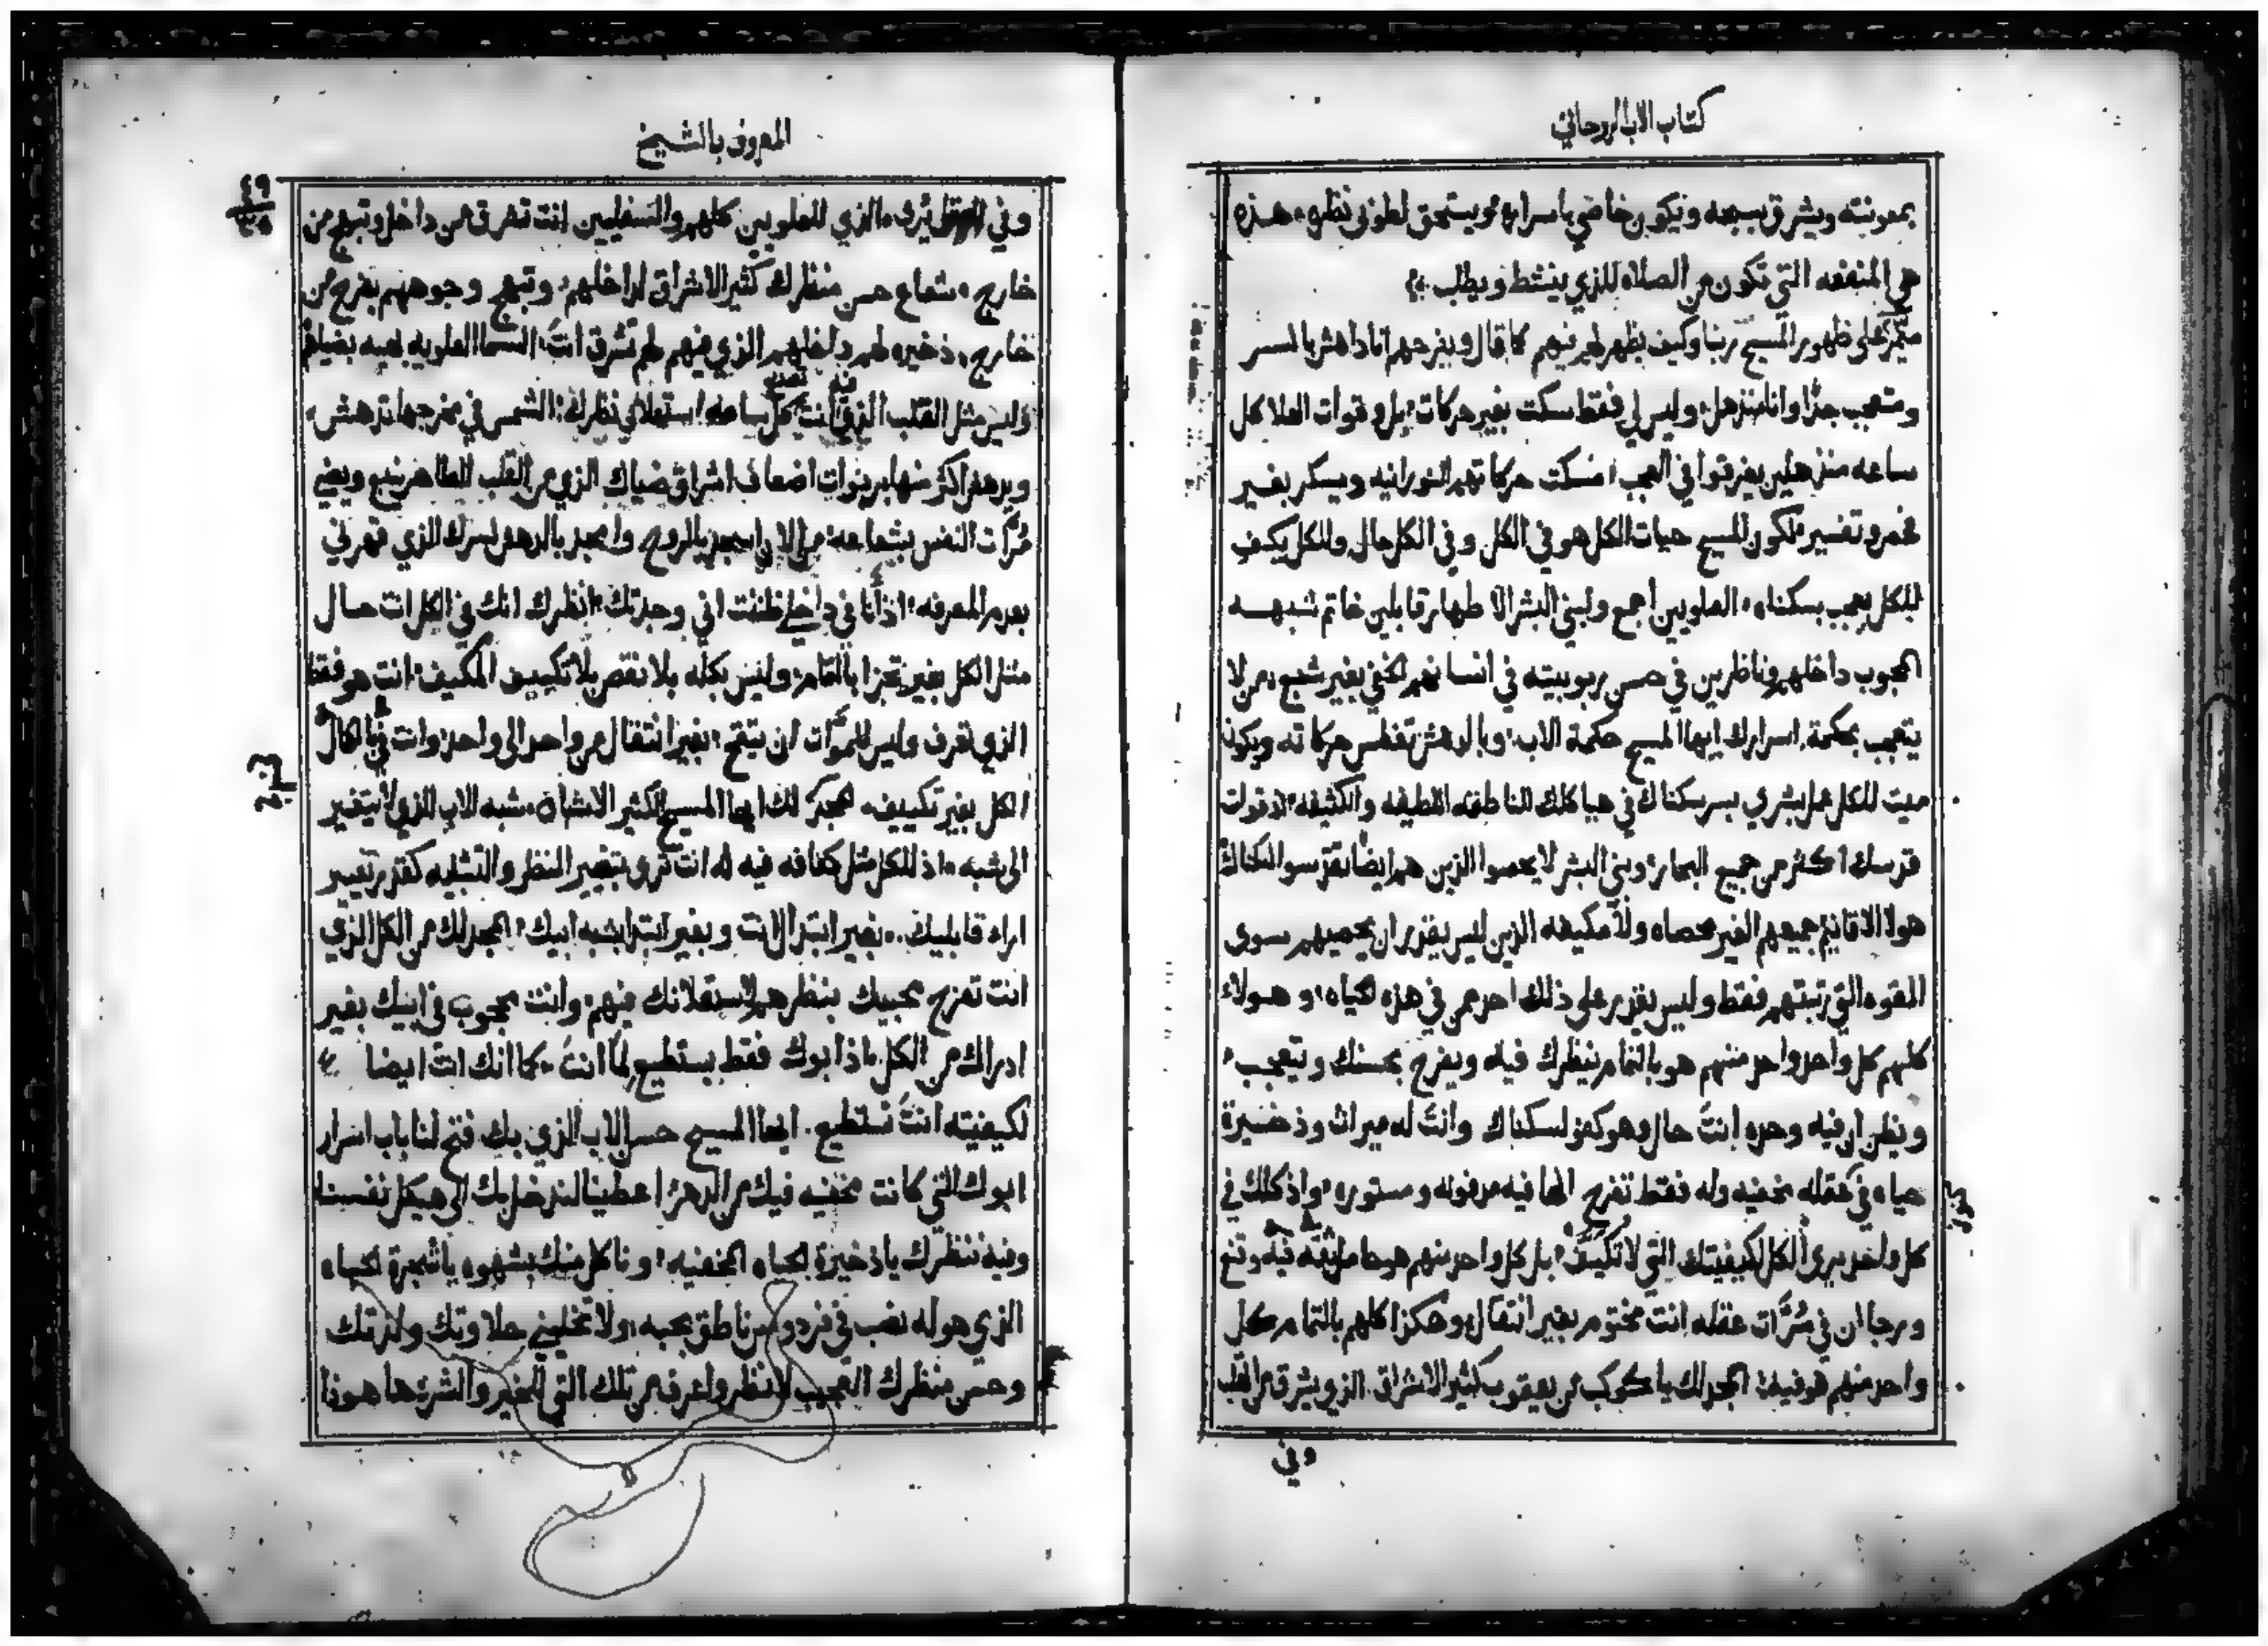 كتاب الاب الروحاني
بمعونته ويشرق بسبحه ويكون خاضي باسراره ويستحق لطوبى نظره هذه
هي المنفعه التي تكون من الصلاه للذي ينشط ويطلب
على ظهور المسيح ربنا وكيف يظهر فيهم كما قال ويفرحهم انا داهش بالسر
ومتعجب جدًا وانا منذهل وليس لي فقط سكت بغير حركات بل وقوات العلا كل
ساعه منذهلين يغرقوا في العجب امسكت حركاتهم النورانيه ويسكر بغير
خمر وتفسير لكون المسيح حيات الكل هو في الكل وفي الكل حال وللكل يكفي
للكل يعجب بسكناه العلويين اجمع ولبني البشر الاطهار قابلين خاتم شبهه
المحبوب داخلهم وناظرين في حسن ربوبيته في انسانهم الخفي بغير شبع من لا
يتعجب بحكمة اسرارك ايها المسيح حكمة الاب وبالدهش تغطس حركاته ويكون
ميت للكل عمل بشري بسر سكناك في هياكلك الناطقه اللطيفه والكثيفه قوات
قدسك اكثر من جميع البحار وبني البشر لا يحصوا الذين هم ايضًا تقدسوا لسكناك
هولا الاقانيم جميعهم الغير محصاه ولا مكيفه الذين ليس يقدر ان يحصيهم سوى
القوه التي رتبتهم فقط وليس يقدر على ذلك احد من في هذه الحياه وهولاء
كلهم كل واحد واحد منهم هو بالتمام ينظرك فيه ويفرح بحسنك ويتعجب
ويظن ان فيه وحده انت حال وهو كفو لسكناك وانت له ميراث وذخيرة
حياه في عقله مخفيه وله فقط تفرح انها فيه مدفونه ومستوره واذ كلك في
كل واحد يرى الكل لكيفيتك التي لا تكيف بل كل واحد منهم هو حامل ثقته فيه وتنع
ورجا ان في مُرَّات عقله انت مختوم بغير انتقال وهكذا كلهم بالتمام كل
واحد منهم هو فيه المجد لك يا كوكب من يعقوب كثير الاشراق الذي يشرق من القلب
وفي
المعروف بالشيخ
٤٩
وفي العقل يُرى الذي للعلويين كلهم والسفليين انت تشرق من داخل وتبهج من
خارج شعاع حسن منظرك كثير الاشراق لداخلهم وتبهج وجوههم بفرح من
خارج ذخيره لهم داخلهم الذي فيهم لم تشرق انت السما العلويه بهيه بضياك
وليس مثل القلب الذي انت كل ساعه استعلاني نظرك الشمس في مخرجها تدهش
ويدهش اكثر منها بربوات اضعاف اشراق ضياك الذي من القلب الطاهر ينبع ويضي
مُرَّات النفس بشعاعه من الان اسجد بالروح وامجد بالدهش لسرك الذي قهرني
بعدم المعرفه اذ انا في داخلي ظننت اني وجدتك انظرك انك في الكل انت حال
مثل الكل بغير تجزا بالتمام وليس بكله بلا نقص بلا تكييف المكيف انت هو فقط
الذي تعرف وليس للمرات ان يتقح بغير انتقال من واحد الى واحد وانت في الكل
الكل بغير تكييف المجد لك ايها المسيح الكثير الاشكال شبه الاب الذي لا يتغير
الى شبه اذ للكل مثل كثافه فيه له انت ترى بتغيير النظر والتشبيه كقدر تغيير
اراه قابليك بغير ابتدال انت وبغير ابتدا بشبه ابيك المجد لك من الكل الذي
انت تفرح محبيك بنظرهم لاستعلانك فيهم وانت محجوب في ابيك بغير
ادراك من الكل اذ ابوك فقط يستطيع لما انت كما انك انت ايضا
لكيفيته انت تستطيع ايها المسيح حسن الاب الذي بك فتح لنا باب اسرار
ابوك التي كانت مخفيه فيك من الدهر اعطينا لندخل بك الى هيكل نفسنا
وفيه ننظرك يا ذخيرة الحياه المخفيه وناكل منك بشهوه يا شجرة الحياه
الذي هو له نصب في فردوس ناطق محبه ولا تخليني حلاوتك ولذتك
وحسن منظرك العجيب لا نظر واعرف من تلك التي للخير والشر ها هوذا